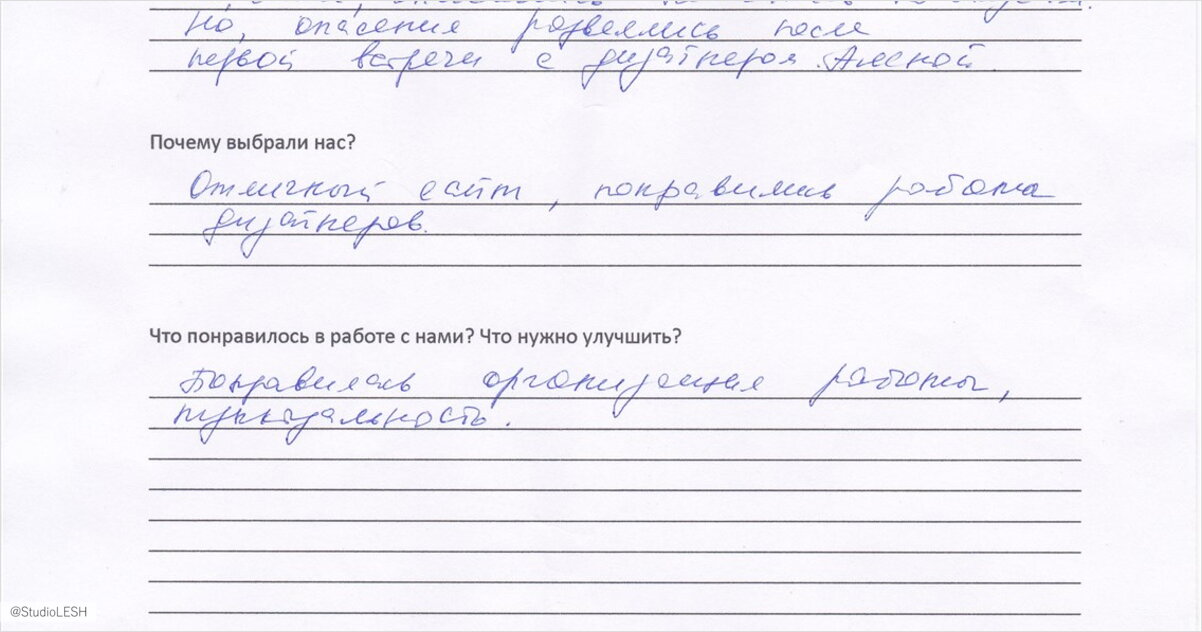 Но, опасения развеялись после
первой встречи с дизайнером Алёной.
Почему выбрали нас?
Отличный сайт, понравились работы
дизайнеров.
Что понравилось в работе с нами? Что нужно улучшить?
Понравилась организация работы,
пунктуальность.
@StudioLESH